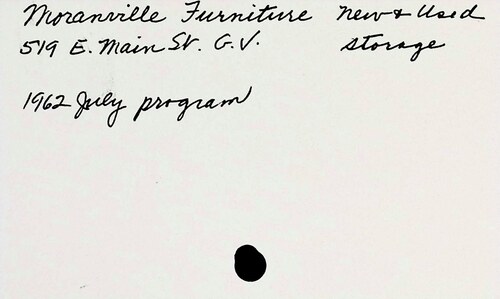 Moranville Furniture New & Used
519 E. Main St. G.V. storage
1962 July program